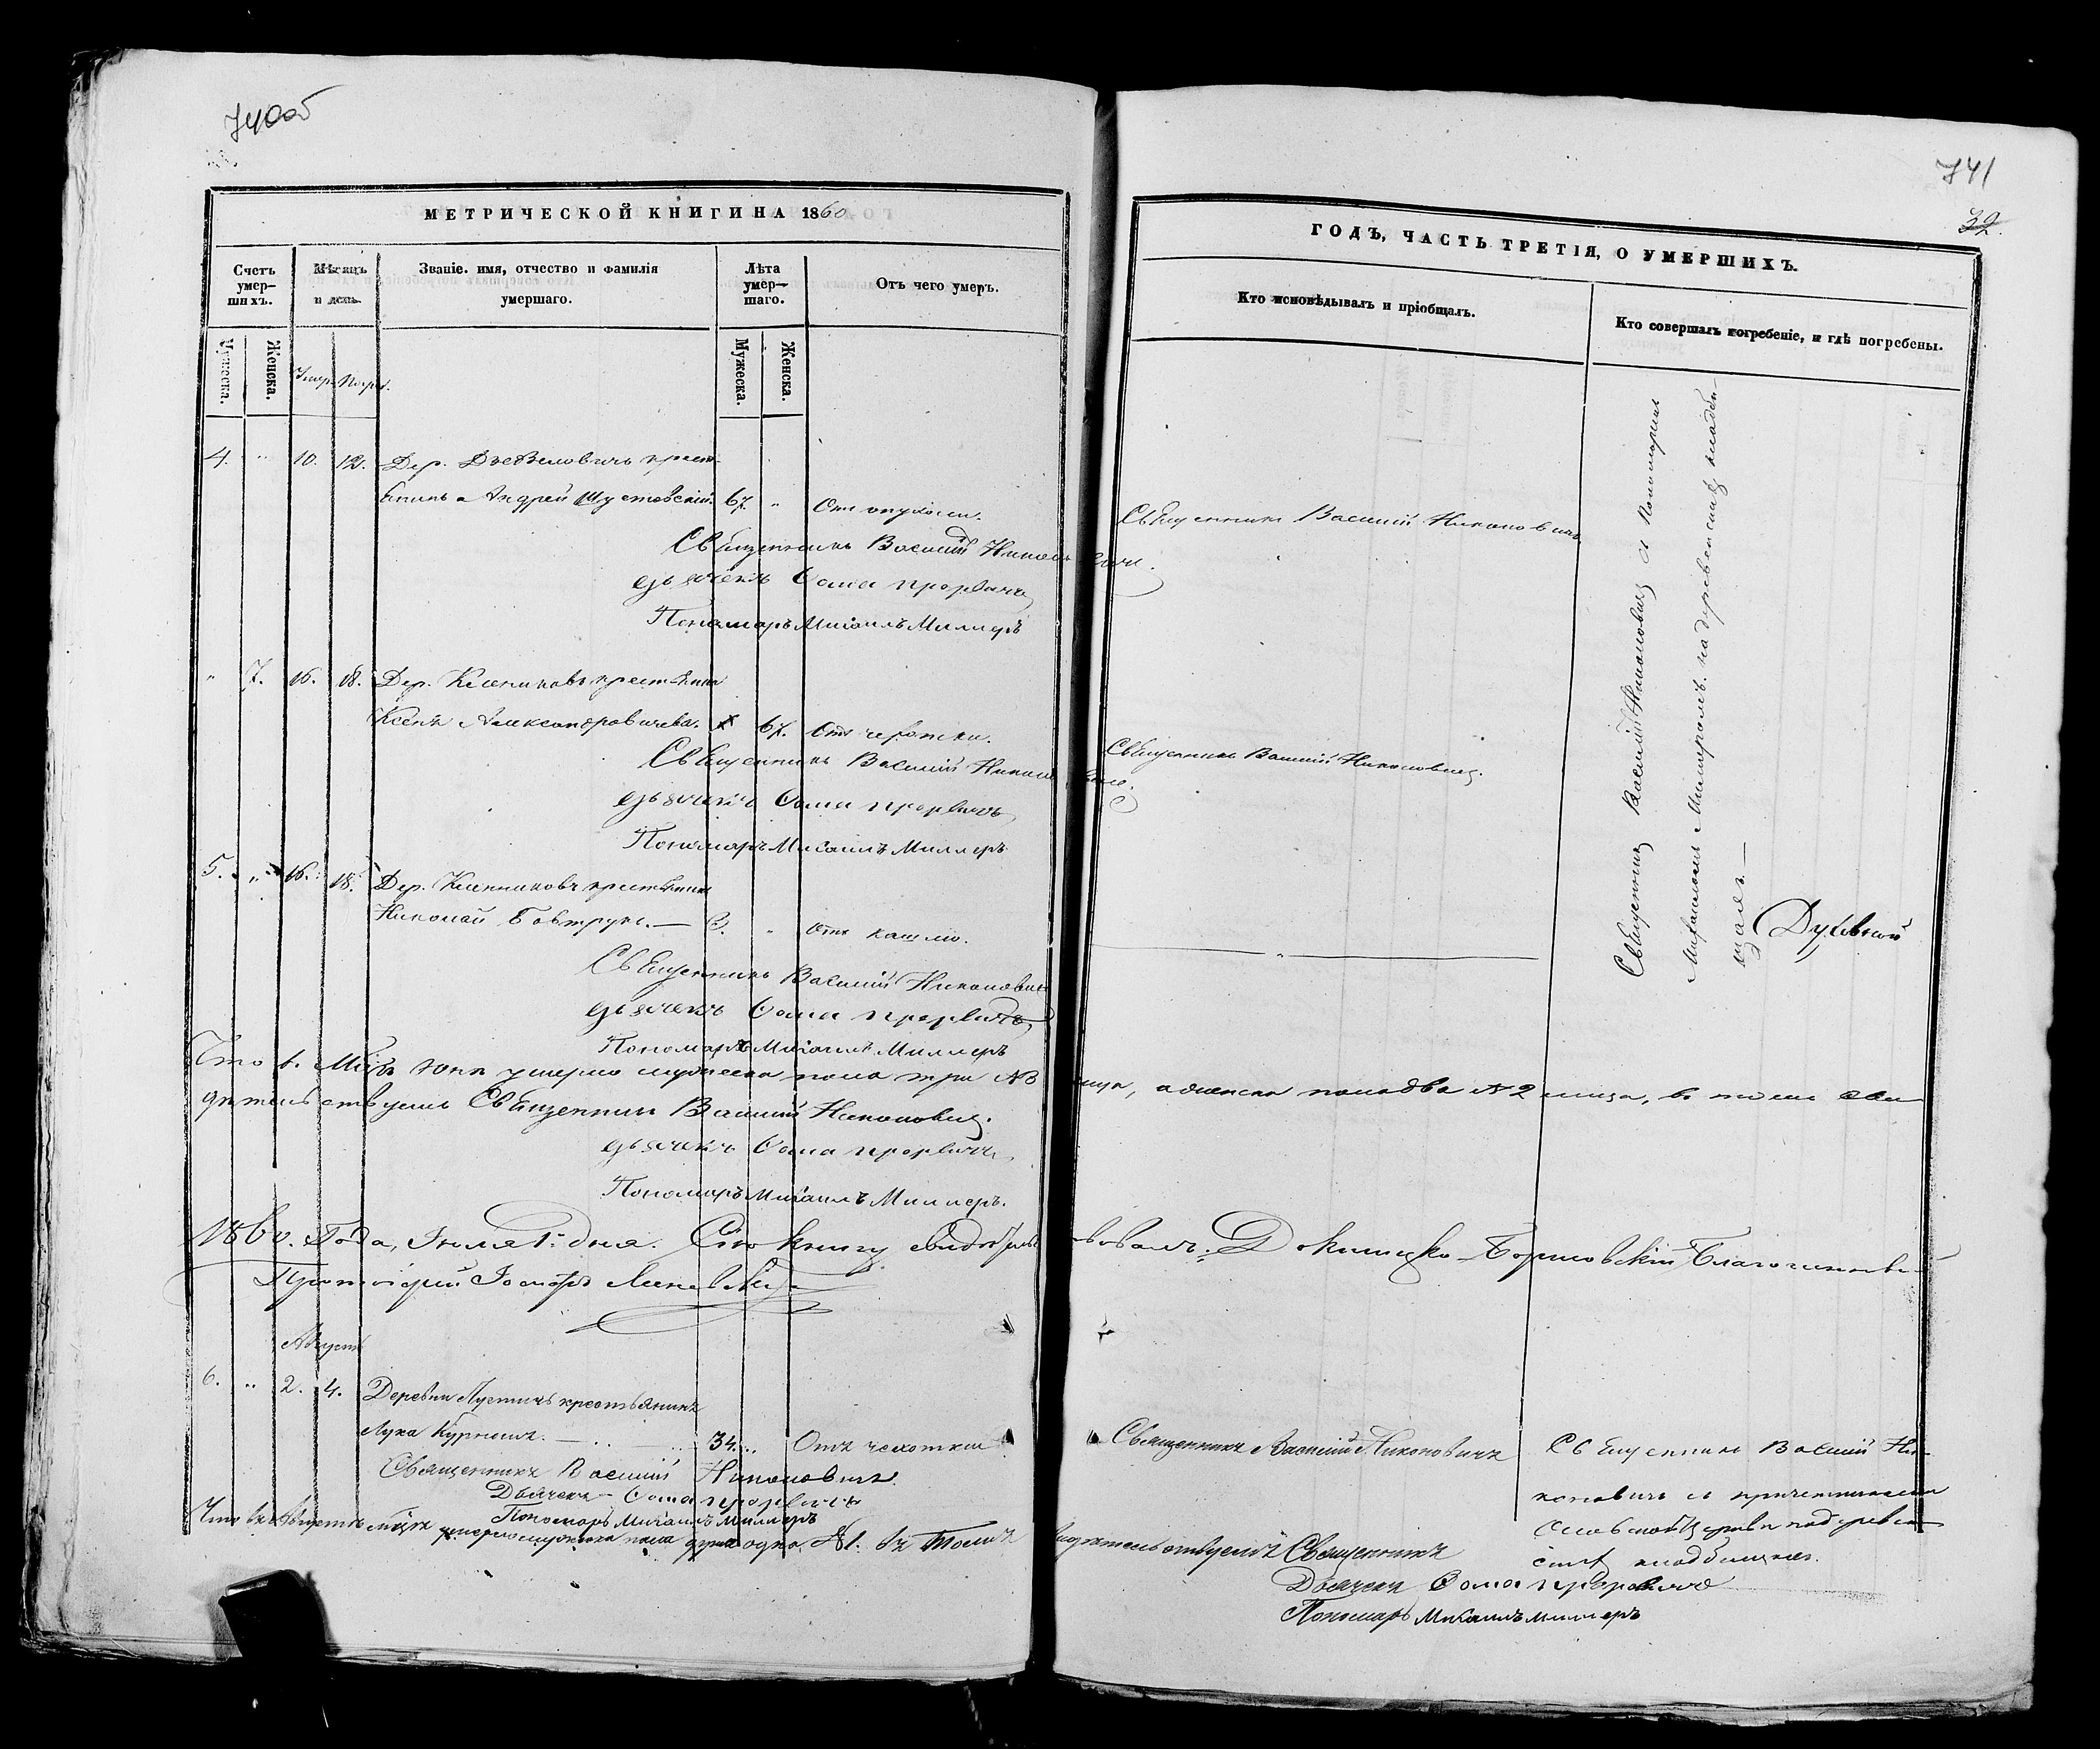 740об
МЕТРИЧЕСКОЙ КНИГИ НА 1860
Счетъ умер- шихъ.
Мѣсяцъ и день.
Званіе. имя, отчество и фамилія умершаго.
Лѣта умер- шаго.
Отъ чего умеръ.
Мужеска.
Женска.
Умер.
Погр.
Мужеска.
Женска.
4. " 10. 12. Дер. крест-
янинъ Андрей Шустовскій. 67. " Отъ опухоли.
Священникъ Василій Никоновичъ.
Дьячекъ Ѳома Прорвичъ
Пономарь Михаилъ Миллеръ
" 7. 16. 18. Дер. Клениковъ крестьянка
Ксенія Александровичева. 67. Отъ
Священникъ Василій Никоновичъ.
Дьячекъ Ѳома Прорвичъ
Пономарь Михаилъ Миллеръ
5. " 16. 18. Дер. Клениковъ крестьянинъ
Николай Бовтрукъ. — 3. " Отъ кашлю.
Священникъ Василій Никоновичъ
Дьячекъ Ѳома Прорвичъ
Пономарь Михаилъ Миллеръ
Что въ умерло мужеска пола три №3 лица, а женска пола два №2 лица, въ томъ сви-
дѣтельствуемъ Священникъ Василій Никоновичъ.
Дьячекъ Ѳома Прорвичъ
Пономарь Михаилъ Миллеръ.
1860. Года, Іюля 1. дня. Сію книгу свидѣтельствовалъ: Докшицко-Борисовскій Благочинный
Протоіерей
Августъ
6. " 2. 4. Деревни крестьянинъ
Лука — 34. " Отъ чахотки
Священникъ Василій Никоновичъ.
Дьячекъ – Ѳома Прорвичъ
Пономарь Михаилъ Миллеръ
Что въ Августѣ мѣсяцѣ умерло мужеска пола одна №1. въ томъ свидѣтельствуемъ Священникъ
Дьячекъ Ѳома Прорвичъ
Пономарь Михаилъ Миллеръ
741
32.
ГОДЪ, ЧАСТЬ ТРЕТІЯ, О УМЕРШИХЪ.
Кто исповѣдывалъ и пріобщалъ.
Кто совершалъ погребеніе, и гдѣ погребены.
Священникъ Василій Никоновичъ
Священникъ Василій Никоновичъ.
Священникъ Василій Никоновичъ съ Пономаремъ
Михаиломъ Миллеромъ. на деревенскихъ кладби-
щахъ. —
Священникъ Василій Никоновичъ
Священникъ Василій Ни-
коновичъ съ причетниками
церкви на деревен-
скихъ кладбищахъ.